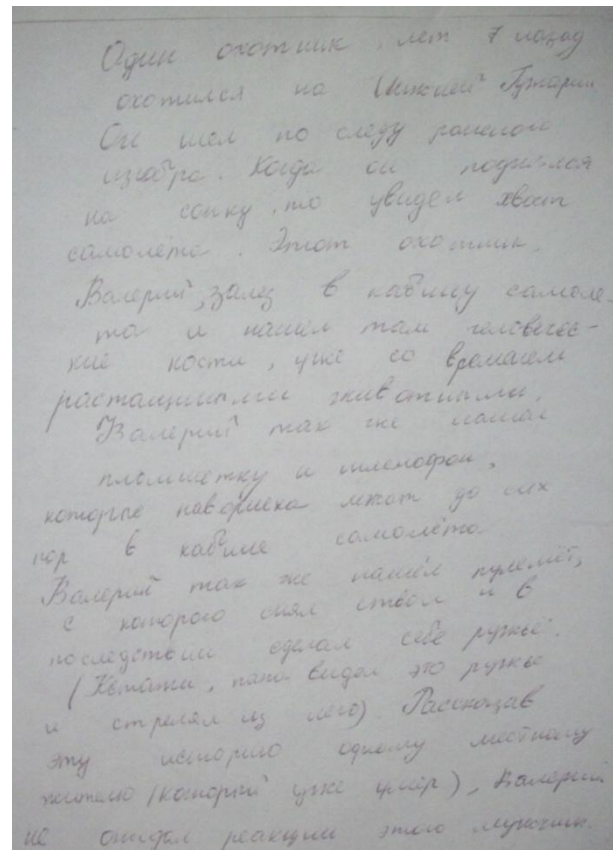 Один охотник, лет 7 назад
охотился на Нижней Гужарии
Он шел по следу раненого
изюбра. Когда он поднялся
на сопку, то увидел хвост
самолёта. Этот охотник,
Валерий, залез в кабину самоле
та и нашел там человечес-
кие кости, уже со временем
растащиными животными.
Валерий так же нашёл
планшетку и шлемофон,
которые наверняка лежат до сих
пор в кабине самолёта.
Валерий так же нашёл пулемёт,
с которого снял ствол и в
последствии сделал себе ружьё.
(Кстати, папа видел это ружьё
и стрелял из него). Рассказав
эту историю одному местному
жителю (который уже умер), Валерий
не ожидал реакции этого мужчины.